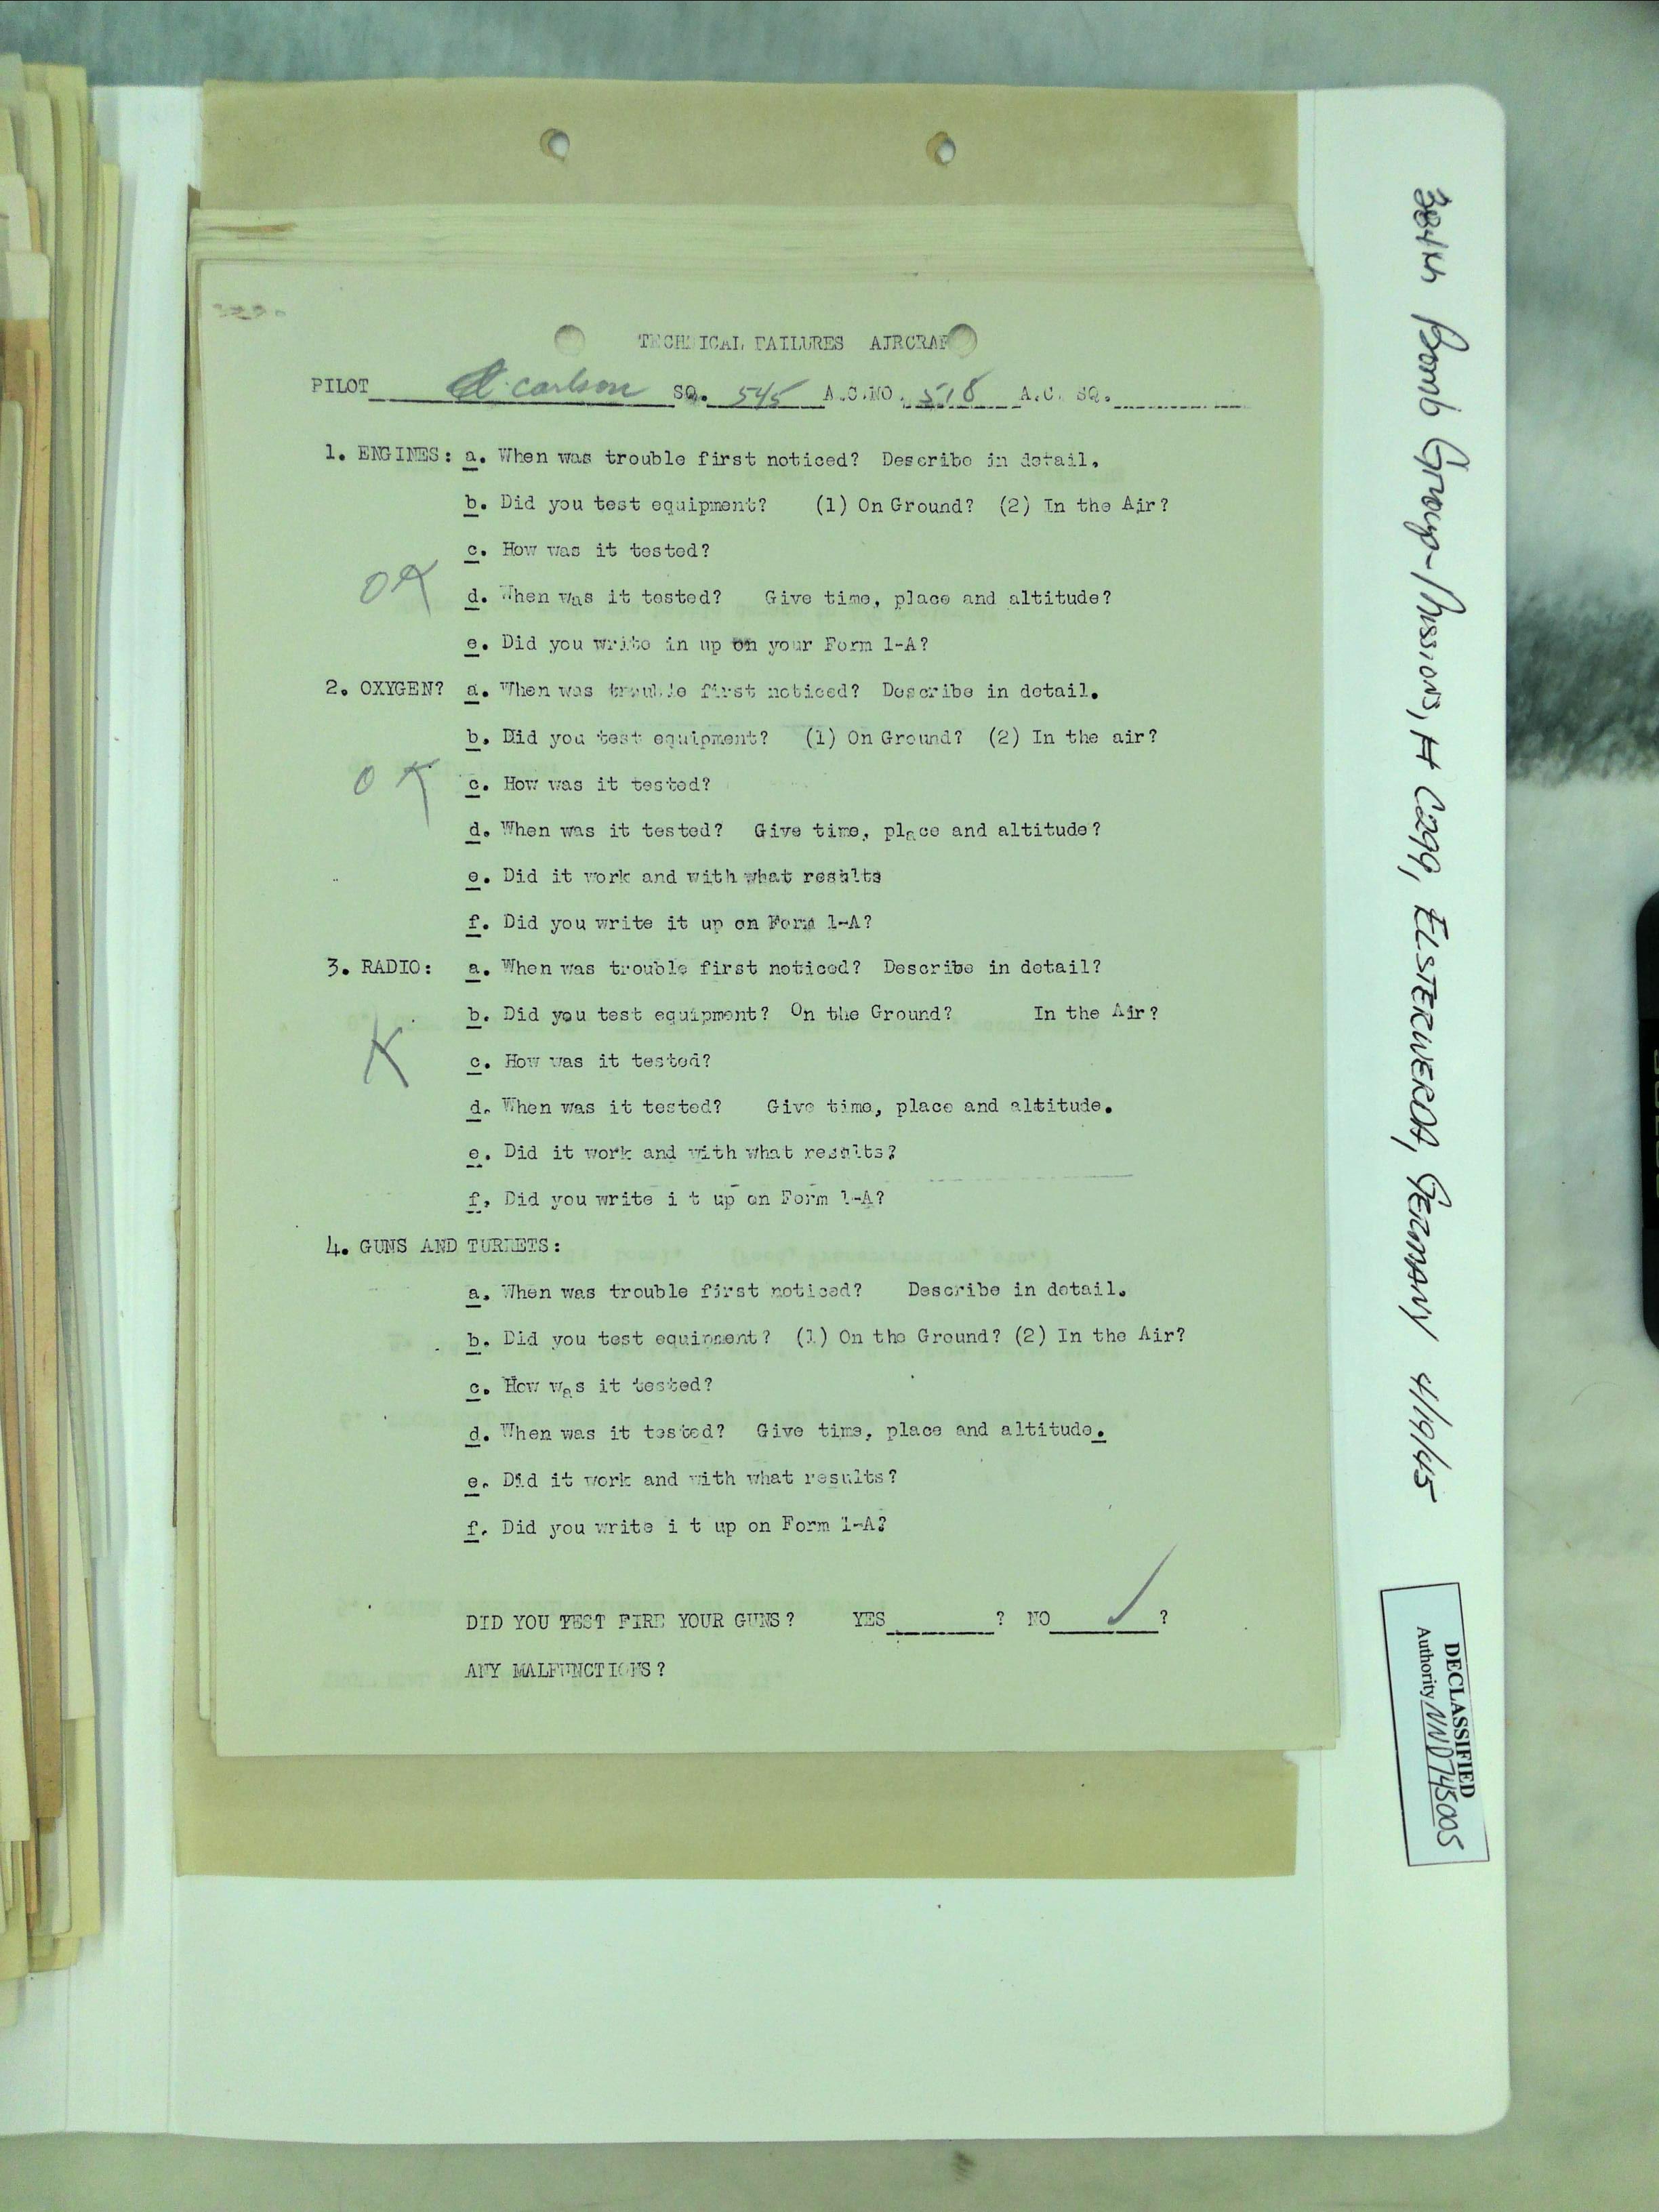 TECHNICAL FAILURES AIRCRAF
PILOT carlson SQ. 545 A.C.NO. 518 A.C. SQ.
1. ENGINES: a. When was trouble first noticed? Describe in detail.
b. Did you test equipment? (1) On Ground? (2) In the Air?
c. How was it tested?
OK
d. When was it tested? Give time, place and altitude?
e. Did you write in up on your Form 1-A?
2. OXYGEN? a. When was trouble first noticed? Describe in detail.
b. Did you test equipment? (1) On Ground? (2) In the air?
OK
c. How was it tested?
d. When was it tested? Give time, place and altitude?
e. Did it work and with what results
f. Did you write it up on Form 1-A?
3. RADIO: a. When was trouble first noticed? Describe in detail?
b. Did you test equipment? On the Ground? In the Air?
K
c. How was it tested?
d. When was it tested? Give time, place and altitude.
e. Did it work and with what results?
f. Did you write i t up on Form 1-A?
4. GUNS AND TURRETS:
a. When was trouble first noticed? Describe in detail.
b. Did you test equipment? (1) On the Ground? (2) In the Air?
c. How was it tested?
d. When was it tested? Give time, place and altitude.
e. Did it work and with what results?
f. Did you write i t up on Form 1-A?
DID YOU TEST FIRE YOUR GUNS? YES ? NO ✓ ?
ANY MALFUNCTIONS?
384th Bomb Group-Missions, A C299, ELSTERWERDA, GERMANY 4/19/45
DECLASSIFIED
Authority NND 745005